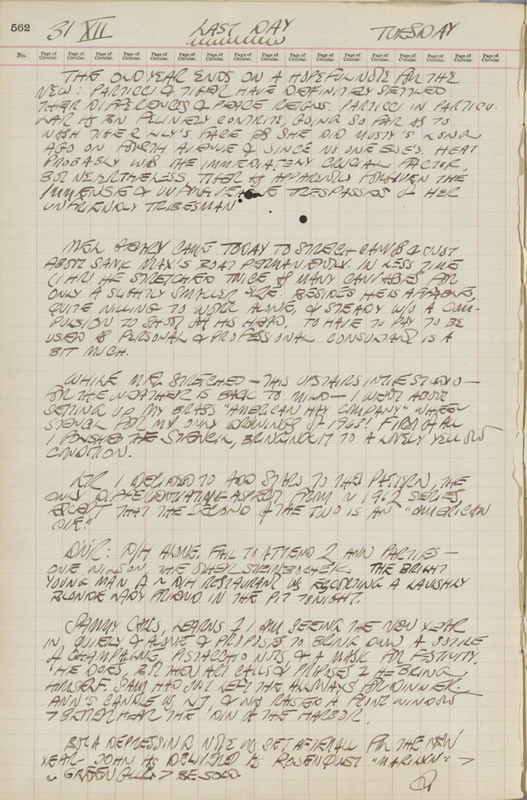 562
31 XII LAST DAY TUESDAY
No. Page of Circular. Page of Circular. Page of Circular. Page of Circular. Page of Circular. Page of Circular. Page of Circular. Page of Circular. Page of Circular. Page of Circular. Page of Circular. Page of Circular. Page of Circular. Page of Circular.
THE OLD YEAR ENDS ON A HOPEFUL NOTE FOR THE
NEW: PARTICCI & TIGER HAVE DEFINITELY SETTLED
THEIR DIFFERENCES & PEACE REIGNS. PARTICCI IN PARTICU-
LAR IS FELINELY CONTRITE, GOING SO FAR AS TO
WASH TIGER LILY'S FACE AS SHE DID MUSTY'S LONG
AGO ON FOURTH AVENUE & SINCE NO ONE ELSE'S. HEAT
PROBABLY WAS THE IMMEDIATELY CRUCIAL FACTOR,
BUT NEVERTHELESS, TIGER APPARENTLY FORGIVEN THE
IMMENSE & TRESPASSES OF HER
UNFRIENDLY TRIBESMAN.
CAME TODAY TO STRETCH CANVAS & JUST
ABOUT SANK MAX'S BOAT PERMANENTLY. IN LESS TIME
(1 HR) HE STRETCHED TWICE AS MANY CANVASES FOR
ONLY A SLIGHTLY SMALLER FEE. BESIDES HE IS AFFABLE,
QUITE WILLING TO WORK ALONE, & STEADY W/O A COM-
PULSION TO SHOOT OFF HIS HEAD. TO HAVE TO PAY TO BE
USED AS PERSONAL & PROFESSIONAL CONSULTANT IS A
BIT MUCH.
WHILE STRETCHED — THIS UPSTAIRS IN THE STUDIO —
FOR THE WEATHER IS BACK TO MILD — I WENT ABOUT
SETTING UP MY BRASS "AMERICAN HAY COMPANY" WHEEL
STENCIL FOR MY ONLY DRAWINGS OF 1963! FIRST OF ALL
I POLISHED THE STENCIL, BRINGING IT TO A LOVELY YELLOW
CONDITION.
I DECIDED TO ADD STARS TO THE PATTERN, THE
ONLY DIFFERENTIATING ASPECT FROM 1962 SERIES,
EXCEPT THAT THE SECOND OF THE TWO IS AN "AMERICAN
DIE."
ALONE. FAIL TO ATTEND 2 ANN PARTIES —
ONE WILSON THE OTHER. THE BRIGHT
YOUNG MAN RESTAURANT IS ESCORTING A LAVISHLY
BLONDE LADY FRIEND IN THE PIT TONIGHT.
SAMMY CALLS, LEARNS I AM SEEING THE NEW YEAR
IN QUIETLY & ALONE & PROPOSES TO BRING OVER A BOTTLE
OF CHAMPAGNE, PISTACHIO NUTS & A MASK FOR FESTIVITY.
HE DOES, BUT THEN CALLS & HE BRING
HIMSELF. SAM HAD LEFT THE FOR DINNER.
ANN'S CANDLE IS LIT, & WE RAISED A FRONT WINDOW
BETTER HEAR THE DIN OF THE HARBOR.
BUT A DEPRESSING NOTE IS SET AFTER ALL FOR THE NEW
YEAR. JOHN HAS DELIVERED ROSENQUIST "MARILYN"
GREEN BE SOLD.